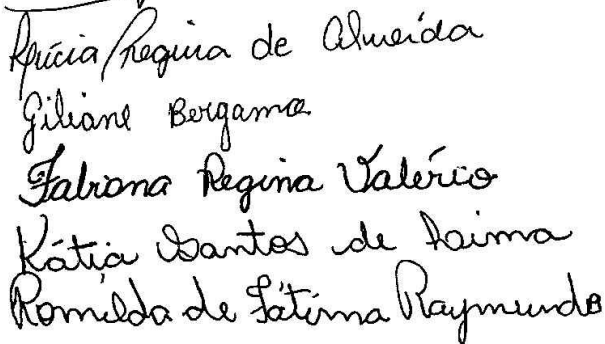 Regina de Almeida
Giliane Bergamo
Fabiana Regina Valério
Kátia Santos de Lima
Romilda de Fátima Raymundo